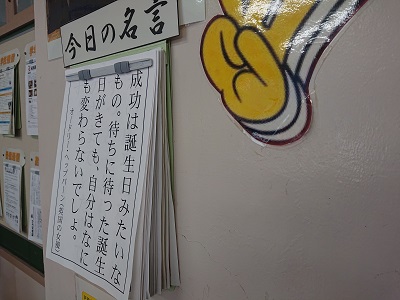 今日の名言
成功は誕生日みたいな
もの。待ちに待った誕生
日がきても、自分はなに
も変わらないでしょ。
オードリー・ヘップバーン(英国の女優)